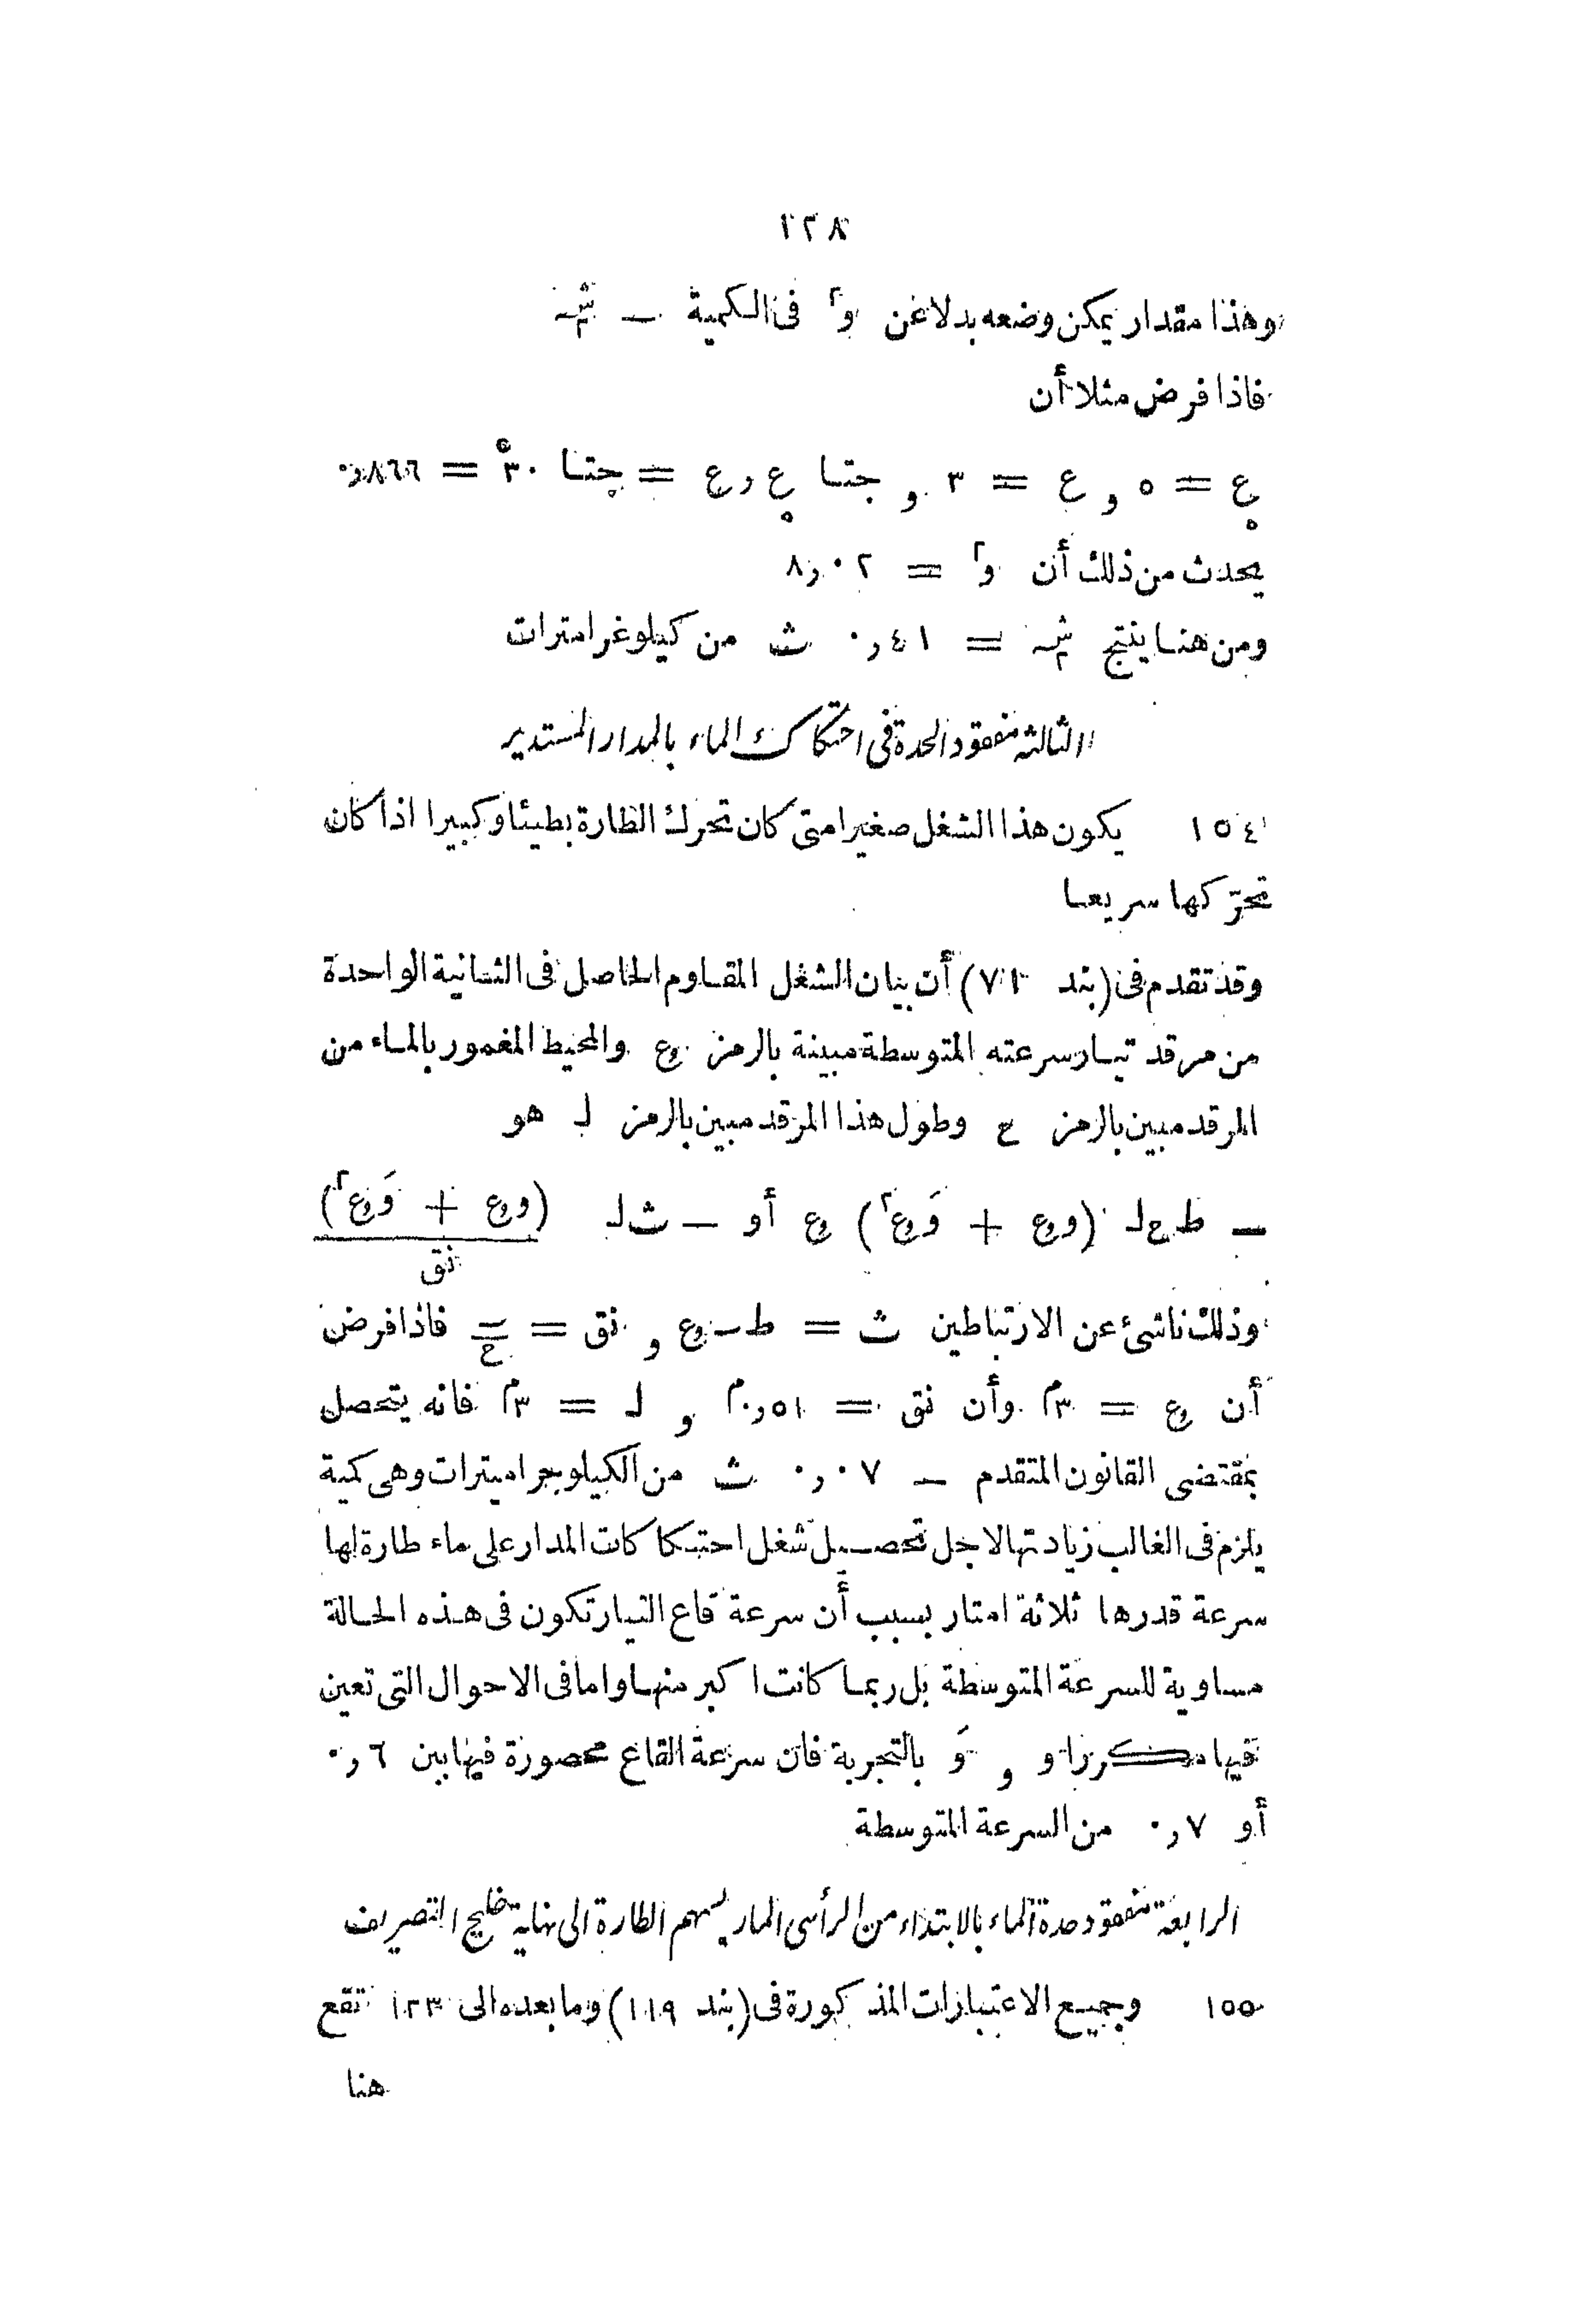 ١٢٨
وهذا مقدار يمكن وضعه بدلا عن و٢ فى الكمية ــ شـ٢
فاذا فرض مثلا أن
ع. = ٥ و ع = ٣ و جتا ع. ر ع = جتا ٣٠° = ٨٦٦ر٠
يحدث من ذلك أن و٢ = ٠٢ر٨
ومن هنا ينتج شـ٢ = ٤١ر٠ ث من كيلوغرامترات
الثالثة مفقود الحدة فى احتكاك الماء بالمدار المستدير
١٥٤ يكون هذا الشغل صغيرا متى كان تحرك الطارة بطيئا وكبيرا اذا كان
تحرّكها سريعا
وقد تقدم فى (بند ٧١) أن بيان الشغل المقاوم الحاصل فى الثانية الواحدة
من مرقد تيار سرعته المتوسطة مبينة بالرمز وع والمحيط المغمور بالماء من
المرقد مبين بالرمز ح وطول هذا المرقد مبين بالرمز لـ هو
ــ ط ح لـ (و وع + وَ وع٢) وع أو ــ ث لـ (و وع + وَ وع٢) / نق
وذلك ناشئ عن الارتباطين ث = ط ـ وع و نق = ـ / ح فاذا فرض
أن وع = ٣م وأن نق = ٥١ر٠م و لـ = ٣م فانه يتحصل
بمقتضى القانون المتقدم ــ ٠٧ر٠ ث من الكيلوجراميترات وهى كمية
يلزم فى الغالب زيادتها لاجل تحصيل شغل احتكاكات المدار على ماء طارة لها
سرعة قدرها ثلاثة امتار بسبب أن سرعة قاع التيار تكون فى هذه الحالة
مساوية للسرعة المتوسطة بل ربما كانت اكبر منها واما فى الاحوال التى تعين
فيها مكررا و و وَ بالتجربة فان سرعة القاع محصورة فيما بين ٦ر٠
أو ٧ر٠ من السرعة المتوسطة
الرابعة مفقود حدة الماء بالابتداء من الرأسى المار بسهم الطارة الى نهاية خليج التصريف
١٥٥ وجميع الاعتبارات المذكورة فى (بند ١١٩) وما بعده الى ١٢٣ تقع
هنا